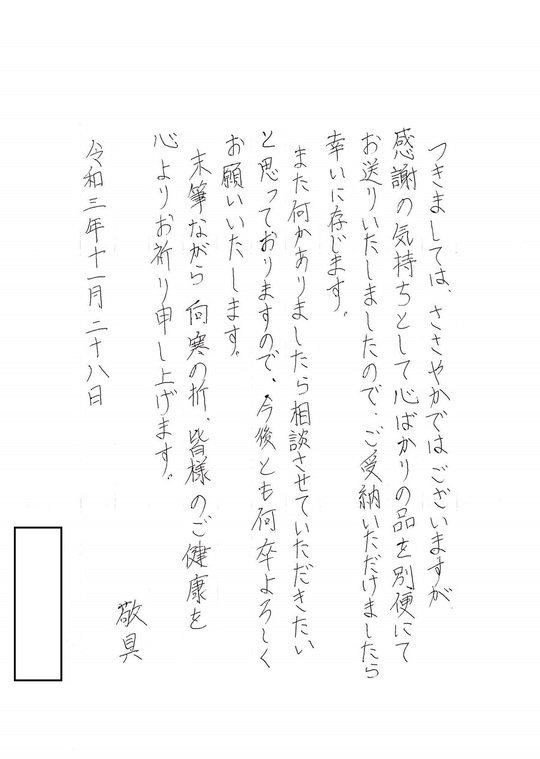 つきましては、ささやかではございますが
感謝の気持ちとして心ばかりの品を別便にて
お送りいたしましたので、ご受納いただけましたら
幸いに存じます。
また何かありましたら相談させていただきたい
と思っておりますので、今後とも何卒よろしく
お願いいたします。
末筆ながら向寒の折、皆様のご健康を
心よりお祈り申し上げます。
敬具
令和三年十一月二十八日